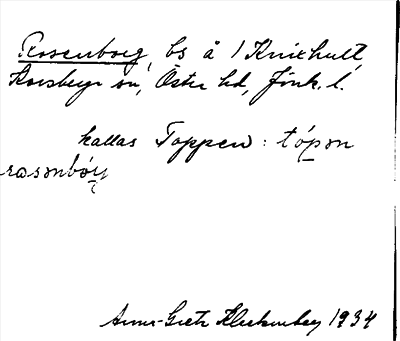 Rosenborg, bs å 1 Knixhult,
Korsberga sn, Östra hd, Jönk. l.
kallas Toppen: tópən
rasənbórj
Anna-Greta Kleckenberg 1934